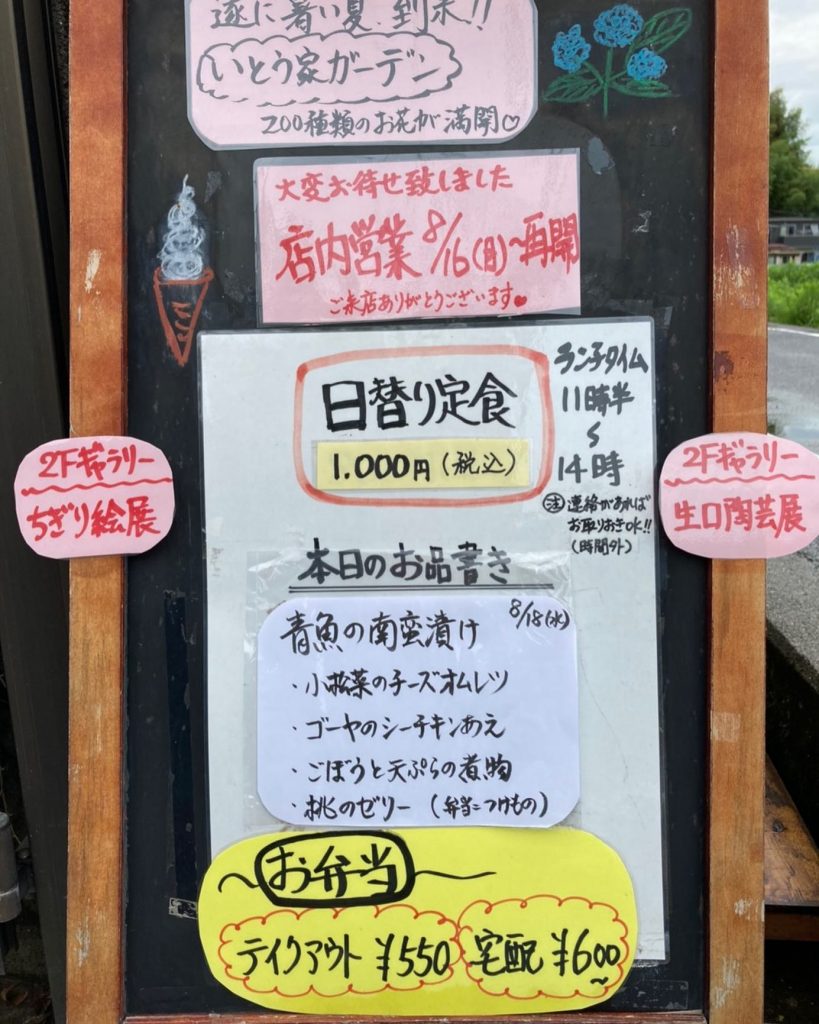 遂に暑い夏、到来!!
いとう家ガーデン
200種類のお花が満開♡
大変お待せ致しました
店内営業8/16(日)~再開
ご来店ありがとうございます♥
日替り定食
1.000円(税込)
ランチタイム
11時半
~
14時
注 連絡があれば
お取りおきOK!!
(時間外)
2Fギャラリー
ちぎり絵展
2Fギャラリー
生口陶芸展
本日のお品書き
8/18(水)
青魚の南蛮漬け
・小松菜のチーズオムレツ
・ゴーヤのシーチキンあえ
・ごぼうと天ぷらの煮物
・桃のゼリー(弁当につけもの)
~お弁当~
テイクアウト ¥550
宅配 ¥600~